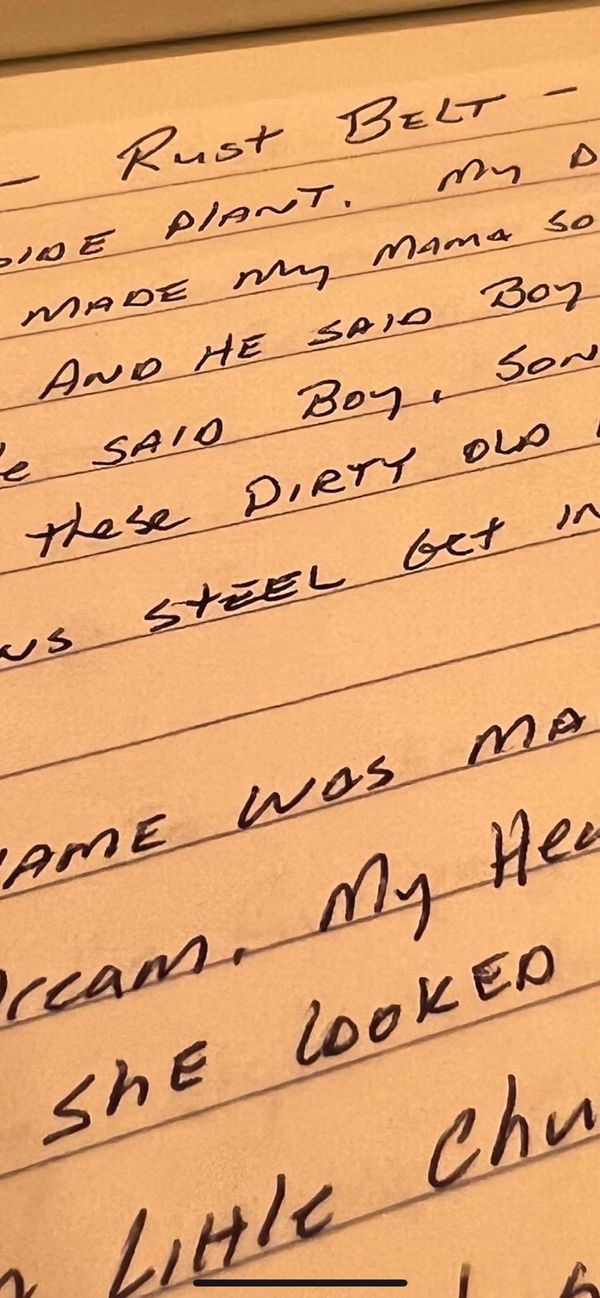 - Rust BELT -
PIANT. My
MADE My MAMA SO
AND HE SAID Boy
SAID Boy, SON
these DIRTY OLD
STEEL Get IN
WAS MA
My
SHE LOOKED
Little Chu